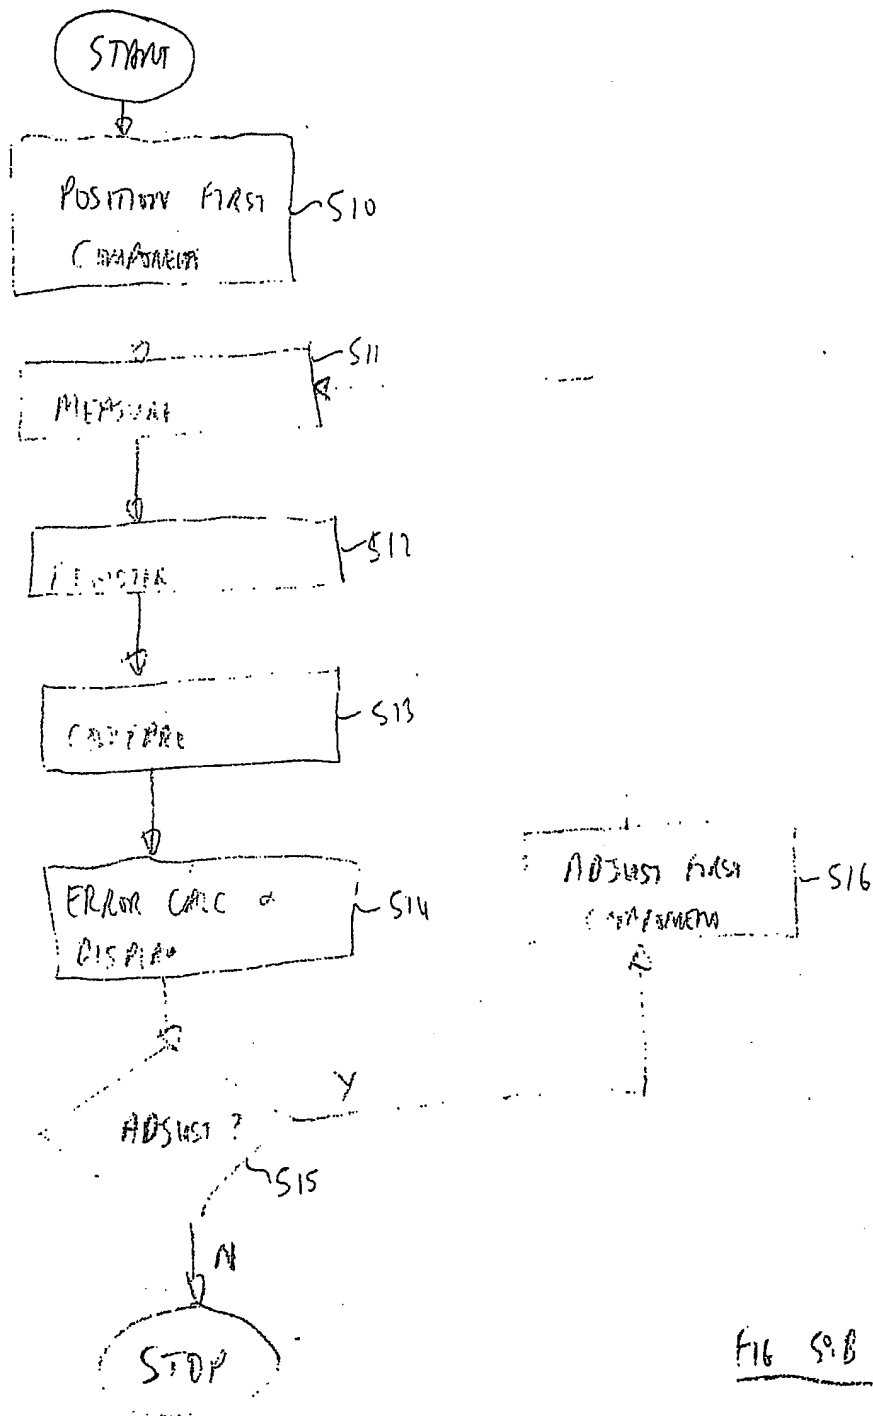 START
POSITION FIRST
COMPONENT
S10
S11
MEASURE
S12
S13
COMPARE
ERROR CALC &
DISPLAY
S14
ADJUST FIRST
COMPONENT
S16
Y
ADJUST ?
S15
N
STOP
FIG